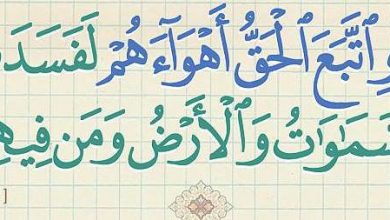 وِ ٱتَّبَعَ ٱلْحَقُّ أَهْوَآءَهُمْ لَفَسَدَ
سَمَٰوَٰتُ وَٱلْأَرْضُ وَمَن فِيهِ